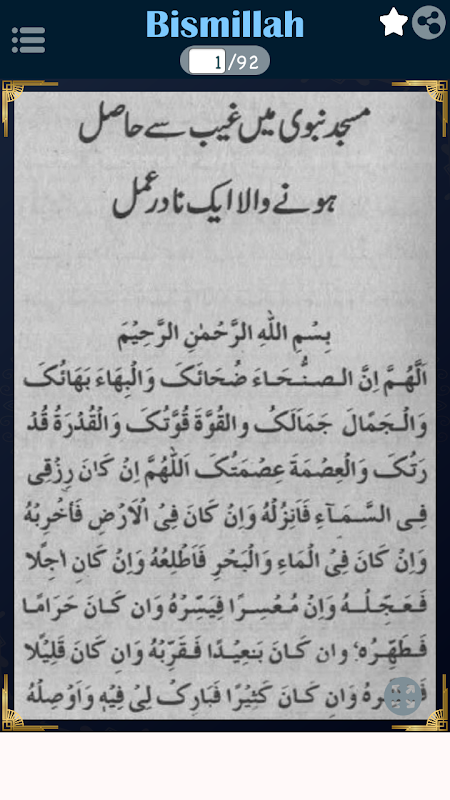 Bismillah
1/92
مسجد نبوی میں غیب سے حاصل
ہونے والا ایک نادر عمل
بِسْمِ اللّٰهِ الرَّحْمٰنِ الرَّحِيْمَ
اَلَّهُمَّ اِنَّ الصُّحَاءَ ضُحَائَكَ وَالْبِهَاءَ بَهَائُكَ
وَالْجَمَالَ جَمَالَكُ وَالقُوَّةَ قُوَّتُكَ وَالْقُدْرَةُ قُدْ
رَتُكَ وَالْعِصْمَةَ عِصْمَتُكَ اَللّٰهُمَّ اِنْ كَانَ رِزْقِى
فِى السَّمَآءِ فَاَنْزِلْهُ وَاِنْ كَانَ فِىْ الْاَرْضِ فَاَخْرِبْهُ
وَاِنْ كَانَ فِىْ الْمَاءِ وَالْبَحْرِ فَاَطْلِعْهُ وَاِنْ كَانِ اٰجِلًا
فَعَجِّلْهُ وَاِنْ مُعْسِرًا فَيَسِّرْهُ وَاِن كَانَ حَرَامًا
فَطَهِّرْهُ وان كَانَ بَعِيْدًا فَقَرِّبْهُ وَاِنِ كَانَ قَلِيْلًا
وَاِنِ كَانَ كَثِيْرًا فَبَارِكْ لِىْ فِيْهِ وَاَوْصِلْهُ